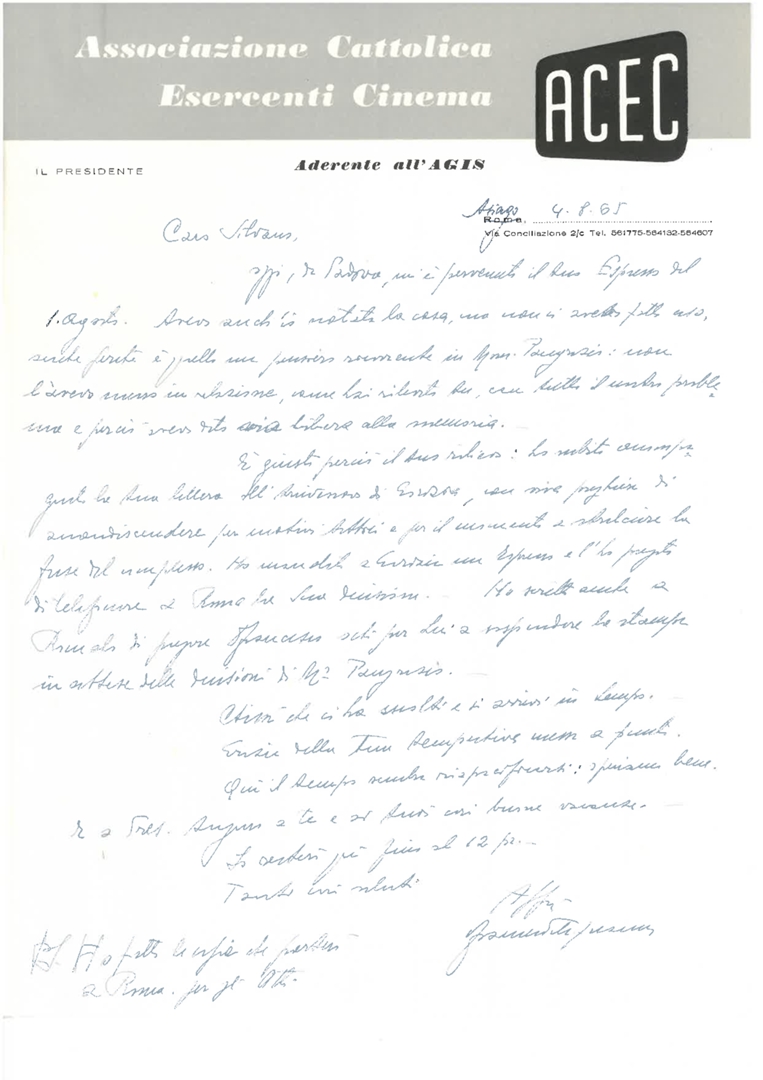 Associazione Cattolica
Esercenti Cinema
ACEC
Aderente all'AGIS
IL PRESIDENTE
Asiago 4.8.65
Roma,
Via Conciliazione 2/c Tel. 561775-564132-564607
Caro Silvano,
oggi, da Padova, mi è pervenuto il tuo Espresso del
1. Agosto. Avevo anch'io notata la cosa, ma non ci avevo fatto caso,
anche perché è quello un pensiero ricorrente in Mons. : non
l'avevo messo in relazione, come hai rilevato tu, con tutto il nostro proble-
ma e perciò avevo dato via libera alla memoria. -
È giusto perciò il tuo rilievo: ho subito
la tua lettera all' di Gorizia, con viva preghiera di
accondiscendere per motivi tattici e per il momento a stralciare la
frase dal complesso. Ho mandato a Gorizia un Espresso e l'ho pregato
di telefonare a Roma la Sua decisione. - Ho scritto anche a
di pregare Francesco per Lui a sospendere la stampa
in attesa delle decisioni di
che ci ascolti e si arrivi in tempo. -
Grazie della Tua tempestiva messa a punto.
Qui il tempo sembra : speriamo bene.
E a Auguro a te e ai tuoi cari buone vacanze. -
Io resterò qui fino al 12 pv. -
Tanti cari saluti
Aff.mo
PS. Ho fatto la copia che
a Roma. per gli Atti.